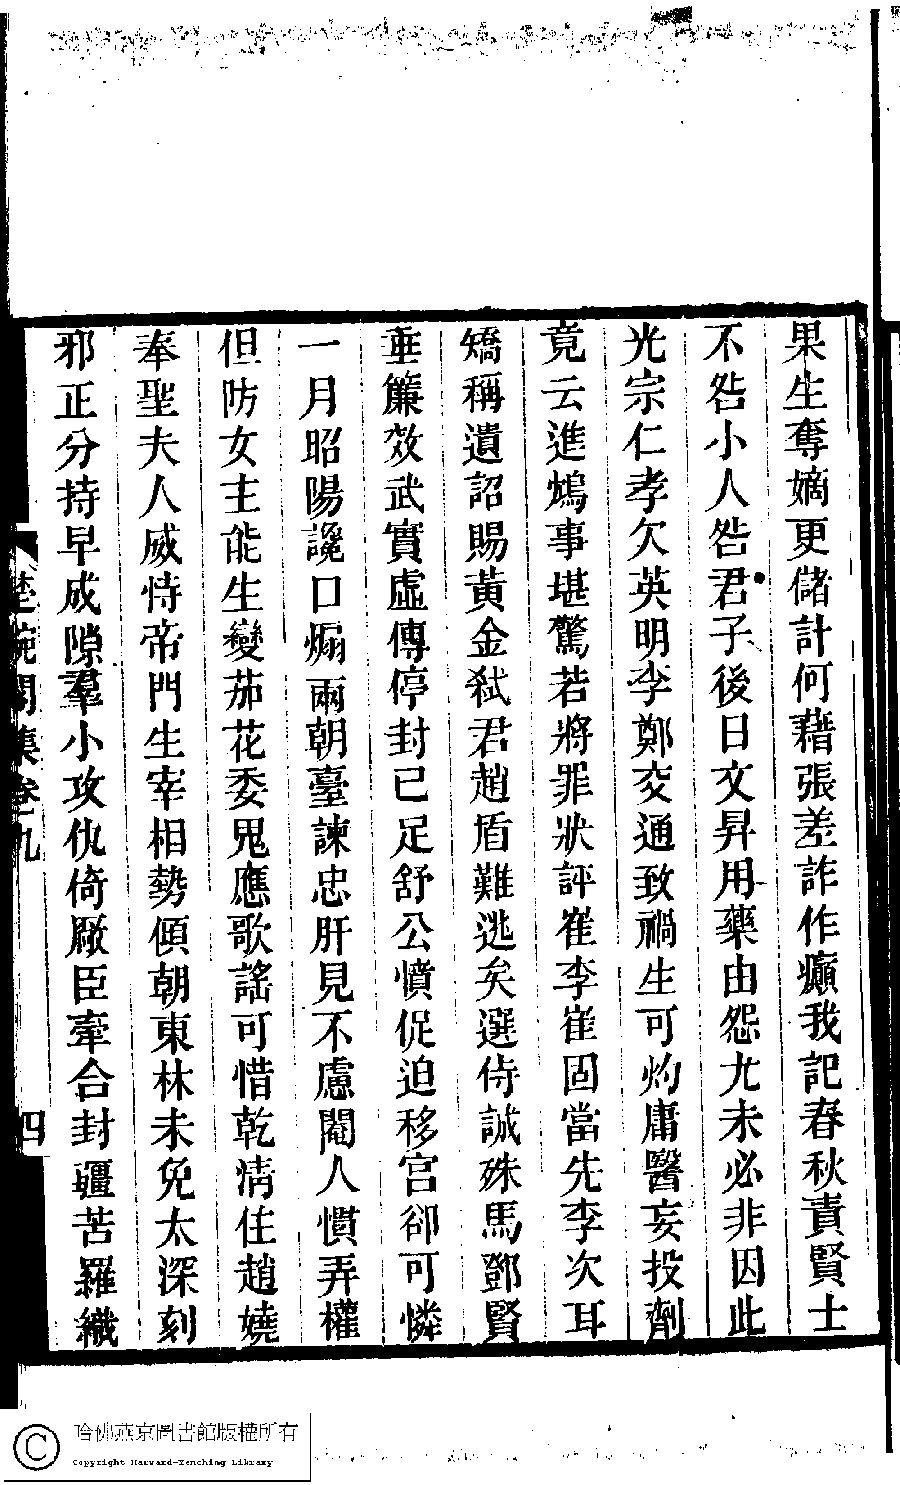 果生奪嫡更儲計何藉張差詐作癲我記春秋責賢士
不咎小人咎君子後日文昇用藥由怨尤未必非因此
光宗仁孝欠英明李鄭交通致禍生可灼庸醫妄投劑
竟云進鴆事堪驚若將罪狀評崔李崔固當先李次耳
矯稱遺詔賜黃金弒君趙盾難逃矣選侍誠殊馬鄧賢
垂簾效武實虛傳停封已足舒公憤促迫移宮卻可憐
一月昭陽讒口煽兩朝臺諫忠肝見不慮閹人慣弄權
但防女主能生變茄花委鬼應歌謠可惜乾清住趙嬈
奉聖夫人威恃帝門生宰相勢傾朝東林未免太深刻
邪正分持早成隙羣小攻仇倚厰臣牽合封疆苦羅織
閣集卷九
四
哈佛燕京圖書館版權所有
Copyright Harvard-Yenching Library